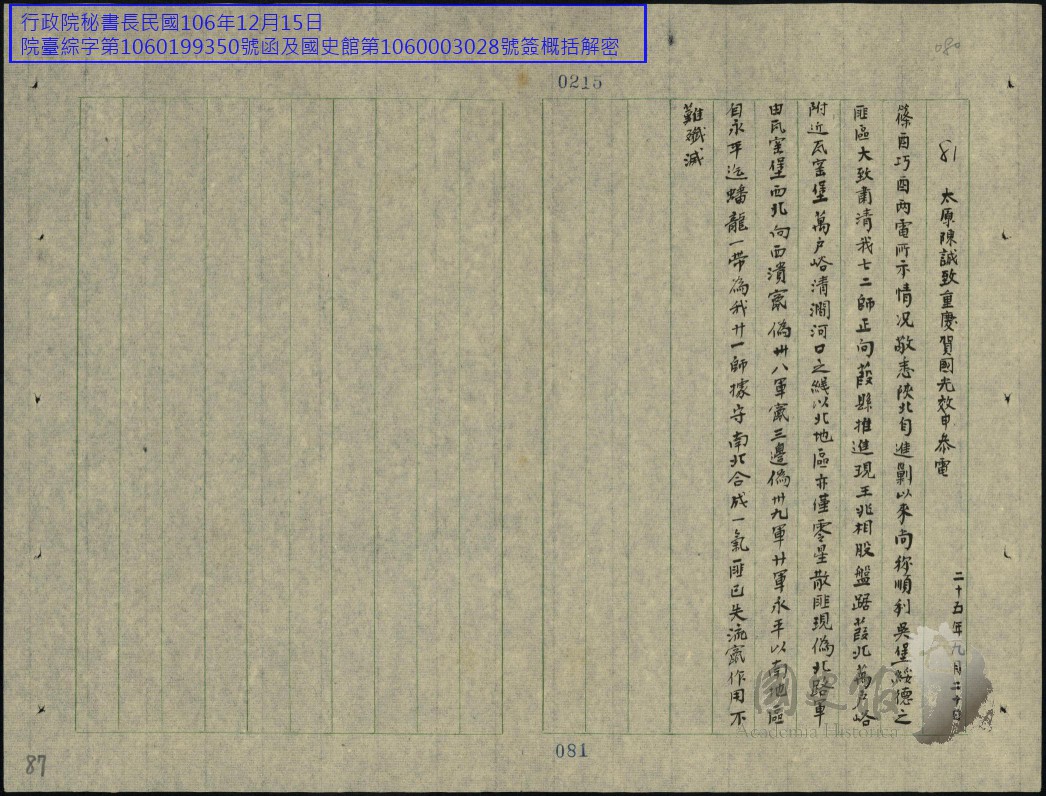 行政院秘書長民國106年12月15日
院臺綜字第1060199350號函及國史館第1060003028號簽概括解密
080
0215
81 太原陳誠致重慶賀國光效申叅電
二十五年九月二十日
篠酉巧酉兩電所示情况敬悉陝北自進剿以來尚称順利吳堡綏德之
匪區大致肅清我七二師正向葭縣推進現王兆相股盤踞葭北萬户峪
附近瓦窑堡萬户峪清澗河口之綫以北地區亦僅零星散匪現偽北路軍
由瓦窑堡西北向西潰竄偽卅八軍竄三邊偽卅九軍廿軍永平以南地區
自永平迄蟠龍一帶為我廿一師據守南北合成一氣匪已失流竄作用不
難殲滅
國史館
Academia Historica
081
87